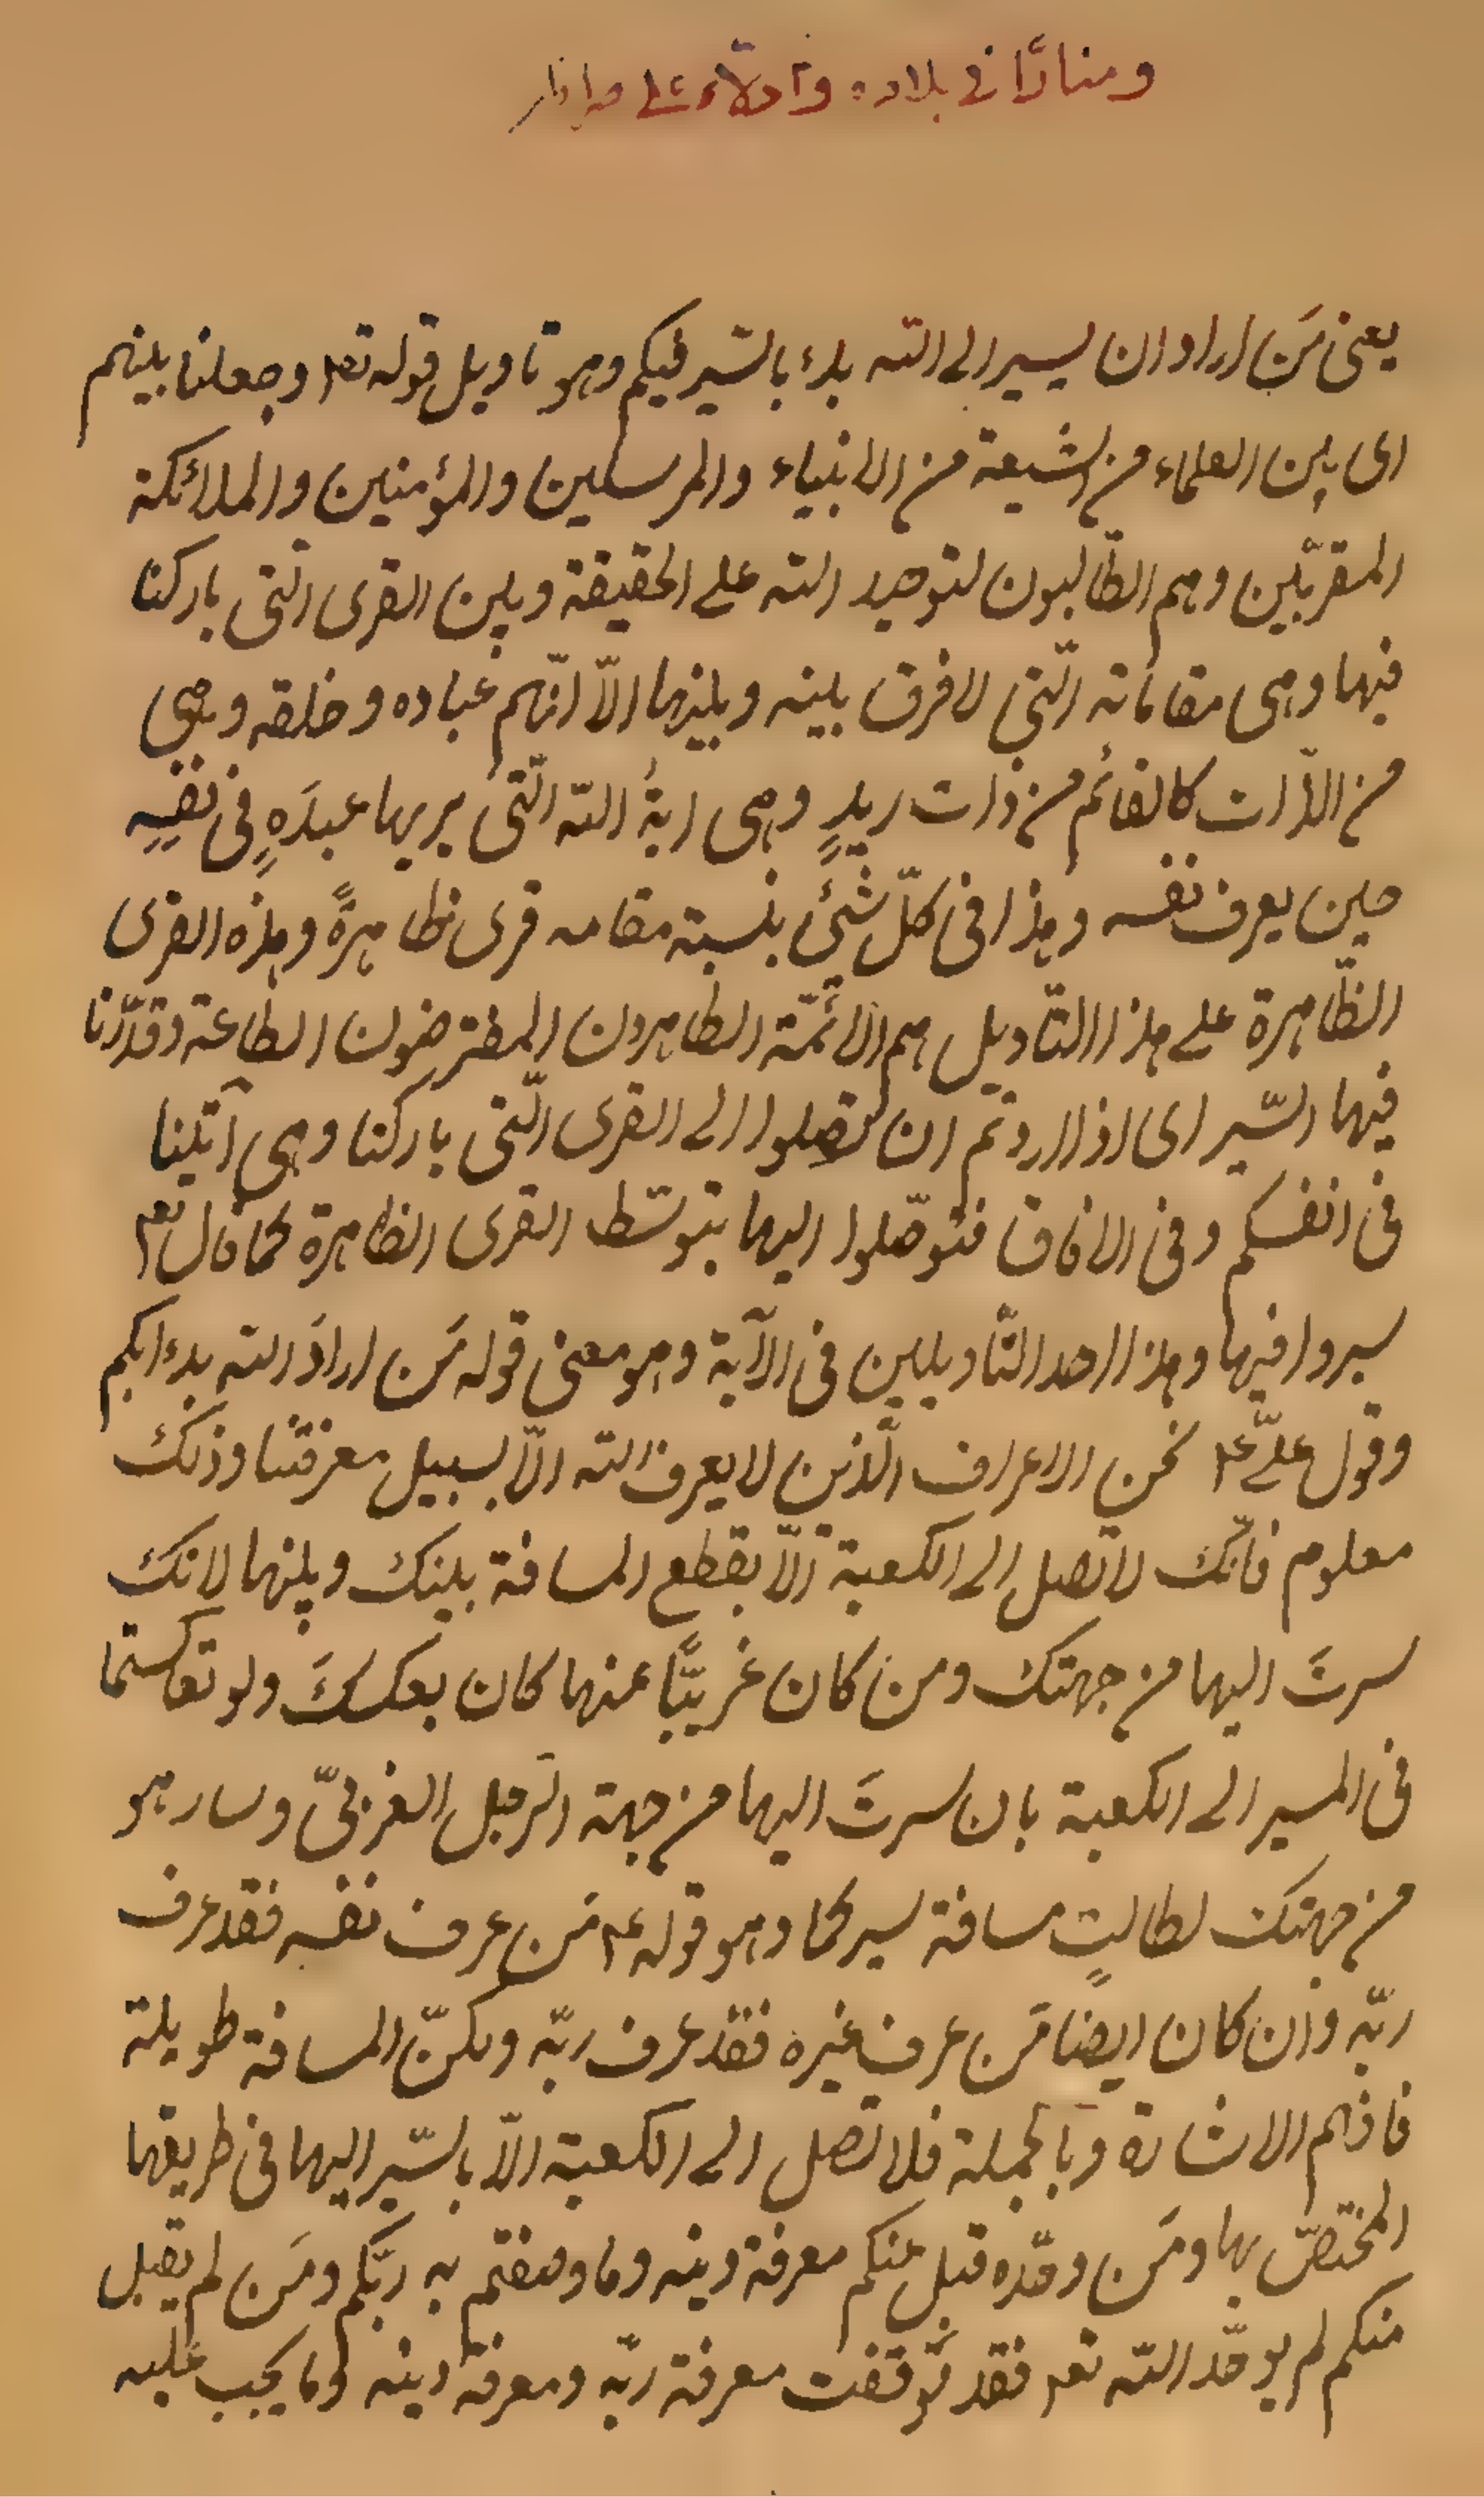 ومنارًا في بلاده وادلاء على صراطه
يعنى مَن اراد ان يسير الى الله بدء بالسّير فيكم وهو تاويل قوله تعـ وجعلنا بينهم
اى بين العلماء من الشيعة من الانبياء والمرسلين والمؤمنين والملائكة
المقرّبين وهم الطّالبون لتوحيد الله على الحقيقة وبين القرى الّتى باركنا
فيها وهى مقاماته الّتى لا فرق بينه وبينها الاّ انّهم عباده وخلقه وهى
من الذّات كالقائم من ذات زيدٍ وهى ايةُ اللّه الّتى يريها عبدَهٍ فى نفسِهِ
حين يعرف نفسه وهذا فى كلّ شئ بنسبة مقامه قرى ظاهرةً وهذه القرى
الظّاهرة على هذا التّاويل هم الائمّة الطاهرون المفترضون الطاعة وقدّرنا
فيها السّير اى اذا اردتم ان تصلوا الى القرى الّتى باركنا وهى آيتنا
فى انفسكم وفى الافاق فتوصّلوا اليها بتوسّط القرى الظاهرة كما قال تعـ
سيروا فيها وهذا احد التّاويلين فى الآية وهو معنى قوله مَن ارادَ الله بدء بكم
وقول علىّ ع نحن الاعراف الّذين لا يعرف الله الاّ بسبيل معرفتنا وذلك
معلوم فانّك لا تصل الى الكعبة الاّ بقطع المسافة بينك وبينها لانك
سرتَ اليها من جهتك ومن كان غربيًّا عنها كان بعكسكَ ولو تعاكستما
فى المسير الى الكعبة بان سرتَ اليها من جهة الرّجل الغربىّ وسار هو
من جهتك لطالت مسافة سيركما وهو قوله ع مَن عرف نفسه فقد عرف
ربّه وان كان ايضًا مَن عرف غيره فقد عرف ربّه ولكنّ المسافة طويلة
فافهم الاشارة وبالجملة فلا تصل الى الكعبة الاّ بالسّير اليها فى طريقها
المختصّ بها ومَن وحّده قبل عنكم معرفة دينه وما وصفتم به ربّكم ومَن لم يقبل
منكم لم يوحّد اللّه تعـ فقد توقفت معرفة ربّه ومعرفة دينه وما يجب عليه